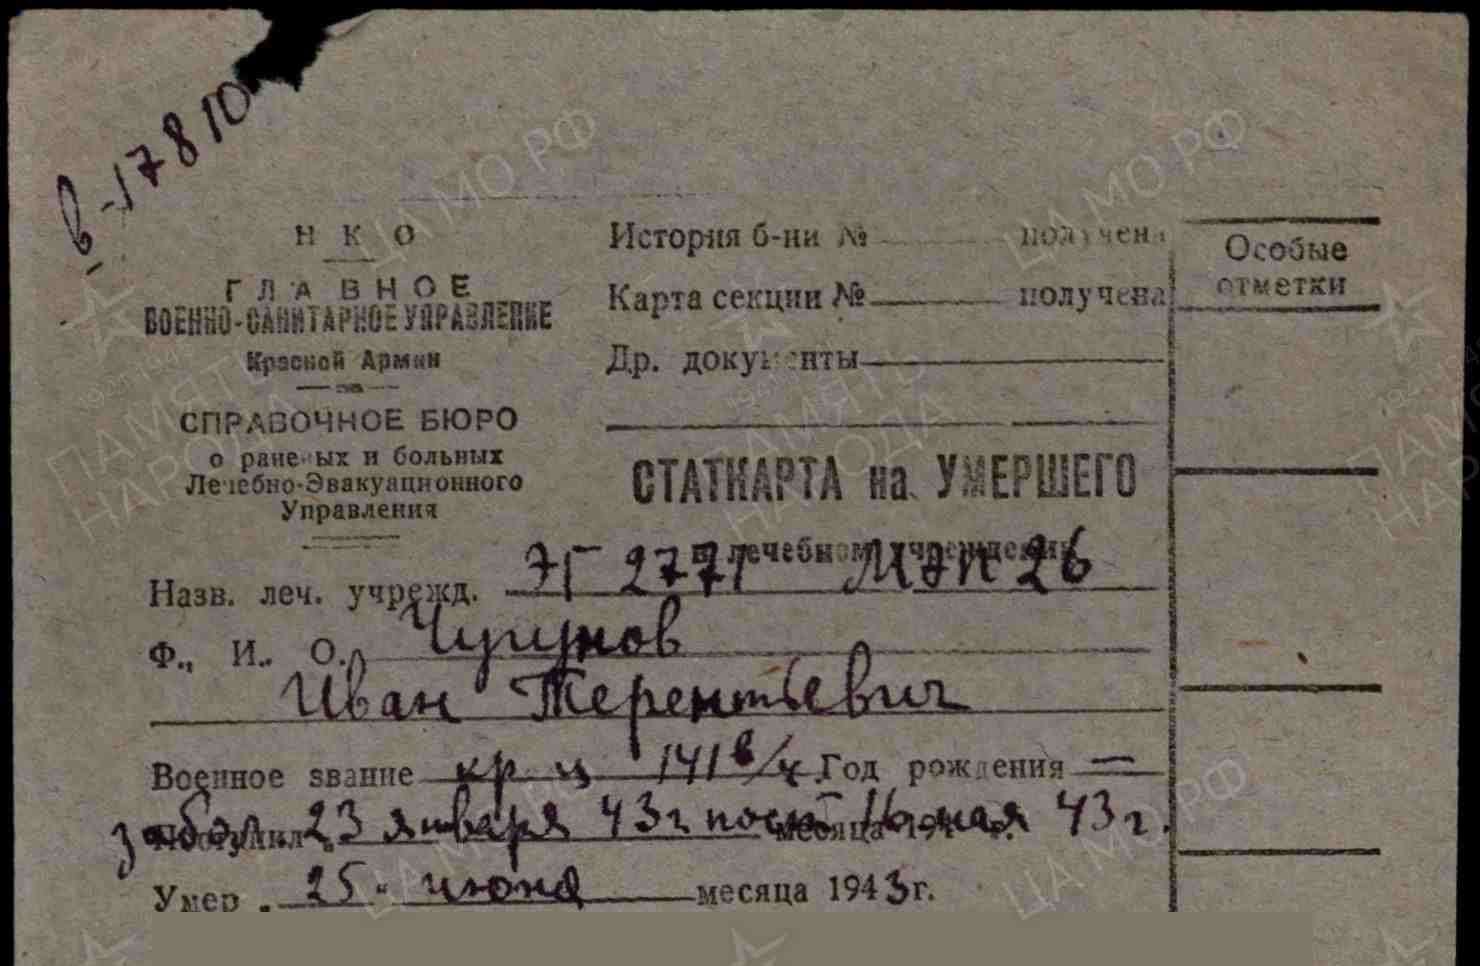 в-17810
Н К О
ГЛАВНОЕ
ВОЕННО-САНИТАРНОЕ УПРАВЛЕНИЕ
Красной Армии
СПРАВОЧНОЕ БЮРО
о раненых и больных
Лечебно-Эвакуационного
Управления
История б-ни № получена
Карта секции № получена
Др. документы
Особые
отметки
СТАТКАРТА на УМЕРШЕГО
в лечебном учреждении
Назв. леч. учрежд. ЭГ 2771 МЭП 26
Ф., И., О. Чугунов
Иван Терентьевич
Военное звание кр-ц 141 в/ч Год рождения —
забол. 23 января 43г пост. мая 43г.
Поступил месяца 194 г.
Умер 25 июня месяца 1943г.
ЦА МО РФ
ПАМЯТЬ
НАРОДА